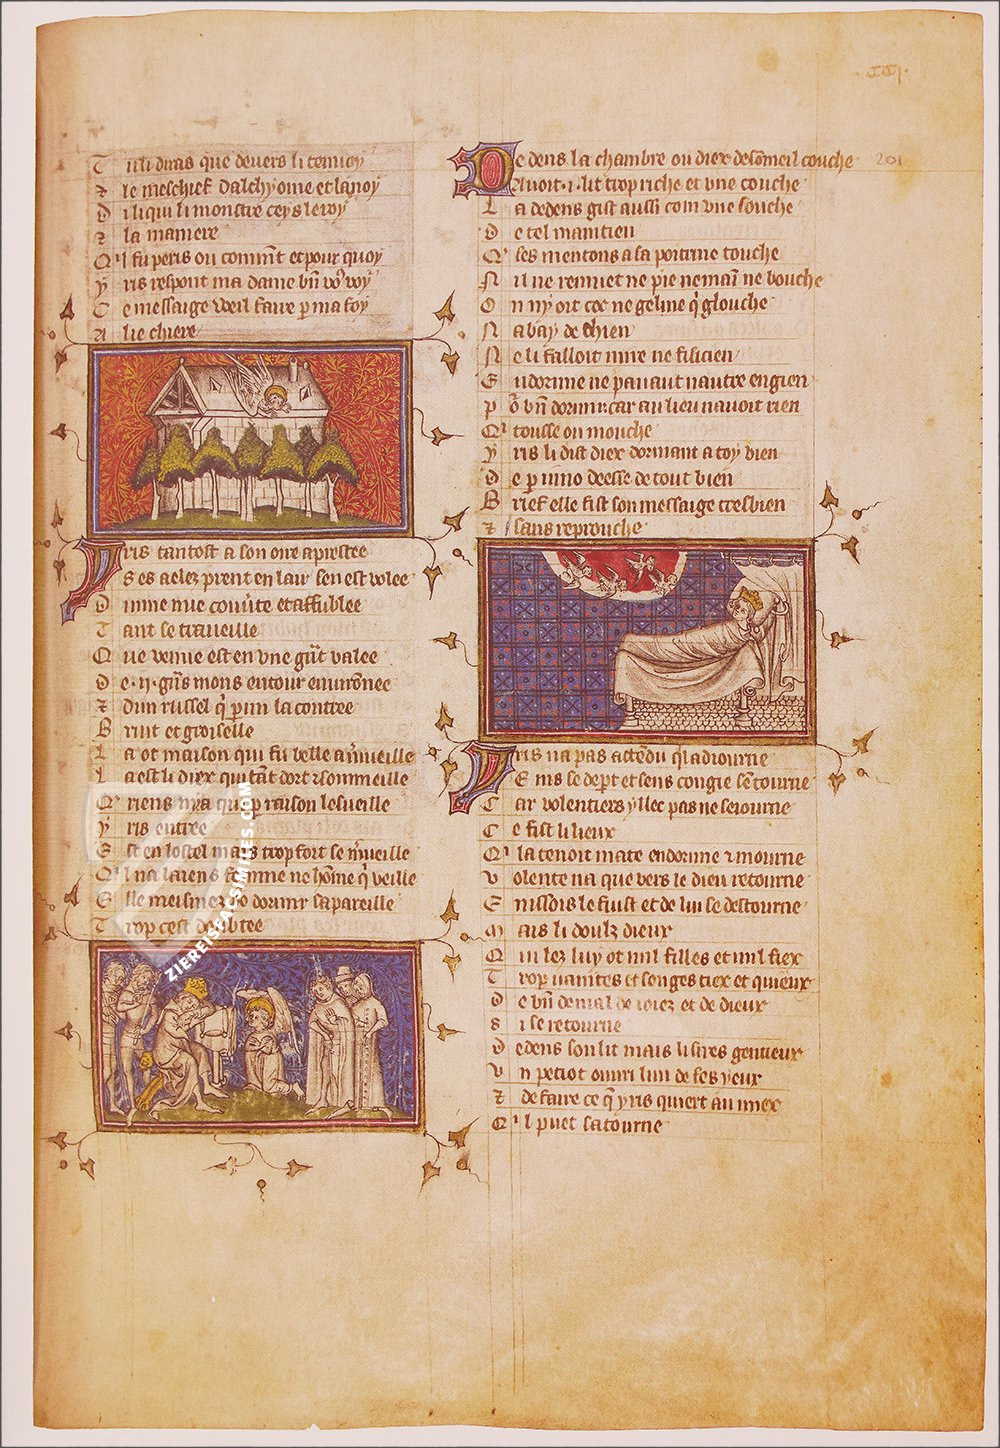 .CCI.
201
T u li diras que devers li t'envoy
⁊ le meschief d'alchyone et l'anoy
D i li qui li monstre ceys le roy
⁊ la maniere
Q'l fu peris ou comm̄t et pour quoy
y ris respont ma dame bn̄ vo voy
C e messaige veil faire p ma foy
A lie chiere
Yris tantost a son oire aprestee
S es aelez prent en lair sen est volee
D une nue cou'te et affublee
T ant se traveille
Q ue venue est en vne gn̄t valee
D e .ij. gn̄s mons entour enuirōnee
⁊ dun russel q̄ p mi la contree
B ruit et groiselle
L a ot maison qui fu belle a m'ueille
L a est li diex qui tāt dort ⁊ sommeille
Q' riens n'ya qui p raison lesueille
y ris entre
E st en lostel mais trop fort se m'ueille
Q'l na laiens feme ne hōme q̄ veille
E lle meismez a dormir sapareille
T rop cest doubtee
Dedens la chambre ou diex de sōmeil couche
A uoit .i. lit trop riche et vne couche
L a dedens gist aussi com vne souche
D e tel maintien
Q' ses mentons a sa poitrine touche
N il ne remuet ne pie ne mai ne bouche
O n ny oit coc ne geline q̄ glouche
N abay de chien
N e li falloit mire ne fisicien
E n dormir ne pauaut nautre engien
p o bn̄ dormir car au lieu nauoit rien
Q' tousse ou mouche
y ris li dist diex dormant a toy vien
D e p iuno deesse de tout bien
B rief elle fist son messaige tresbien
⁊ sans reprouche
Yris na pas attēdu q'l adiourne
E ins se dept et sens congie sē tourne
C ar volentiers yllec pas ne seiourne
C e fist li lieux
Q' la tenoit mate endormie ⁊ mourne
V olente na que vers le dieu retourne
E n issois le fuist et de lui se destourne
M ais li doulz dieux
Q ui lez luy ot mil filles et mil fiex
T rop uanites et songes tiex et quieux
D e bn̄ de mal de ioiez et de dieux
S i se retourne
D edens son lit mais li sires gentieux
V n petiot ouuri lun de ses yeux
⁊ de faire ce q̄ yris quiert au miex
Q'l puet satourne
ZIEREISFACSIMILES.COM